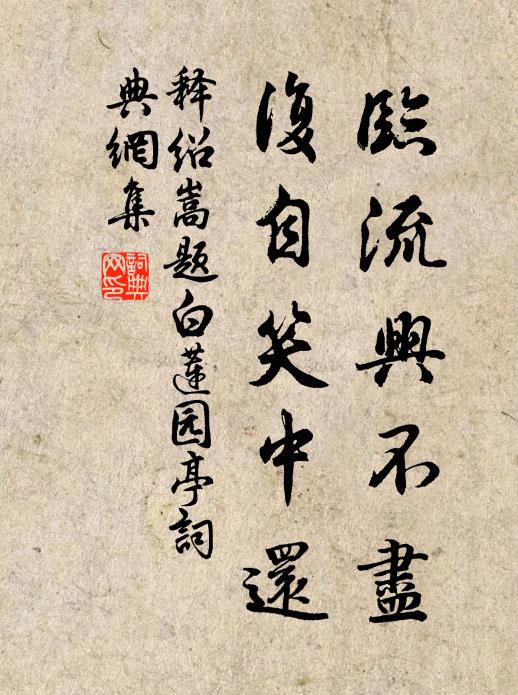 臨流興不盡
復自笑中還
释绍嵩題白蓮园亭詞
典網集
詞典
网印